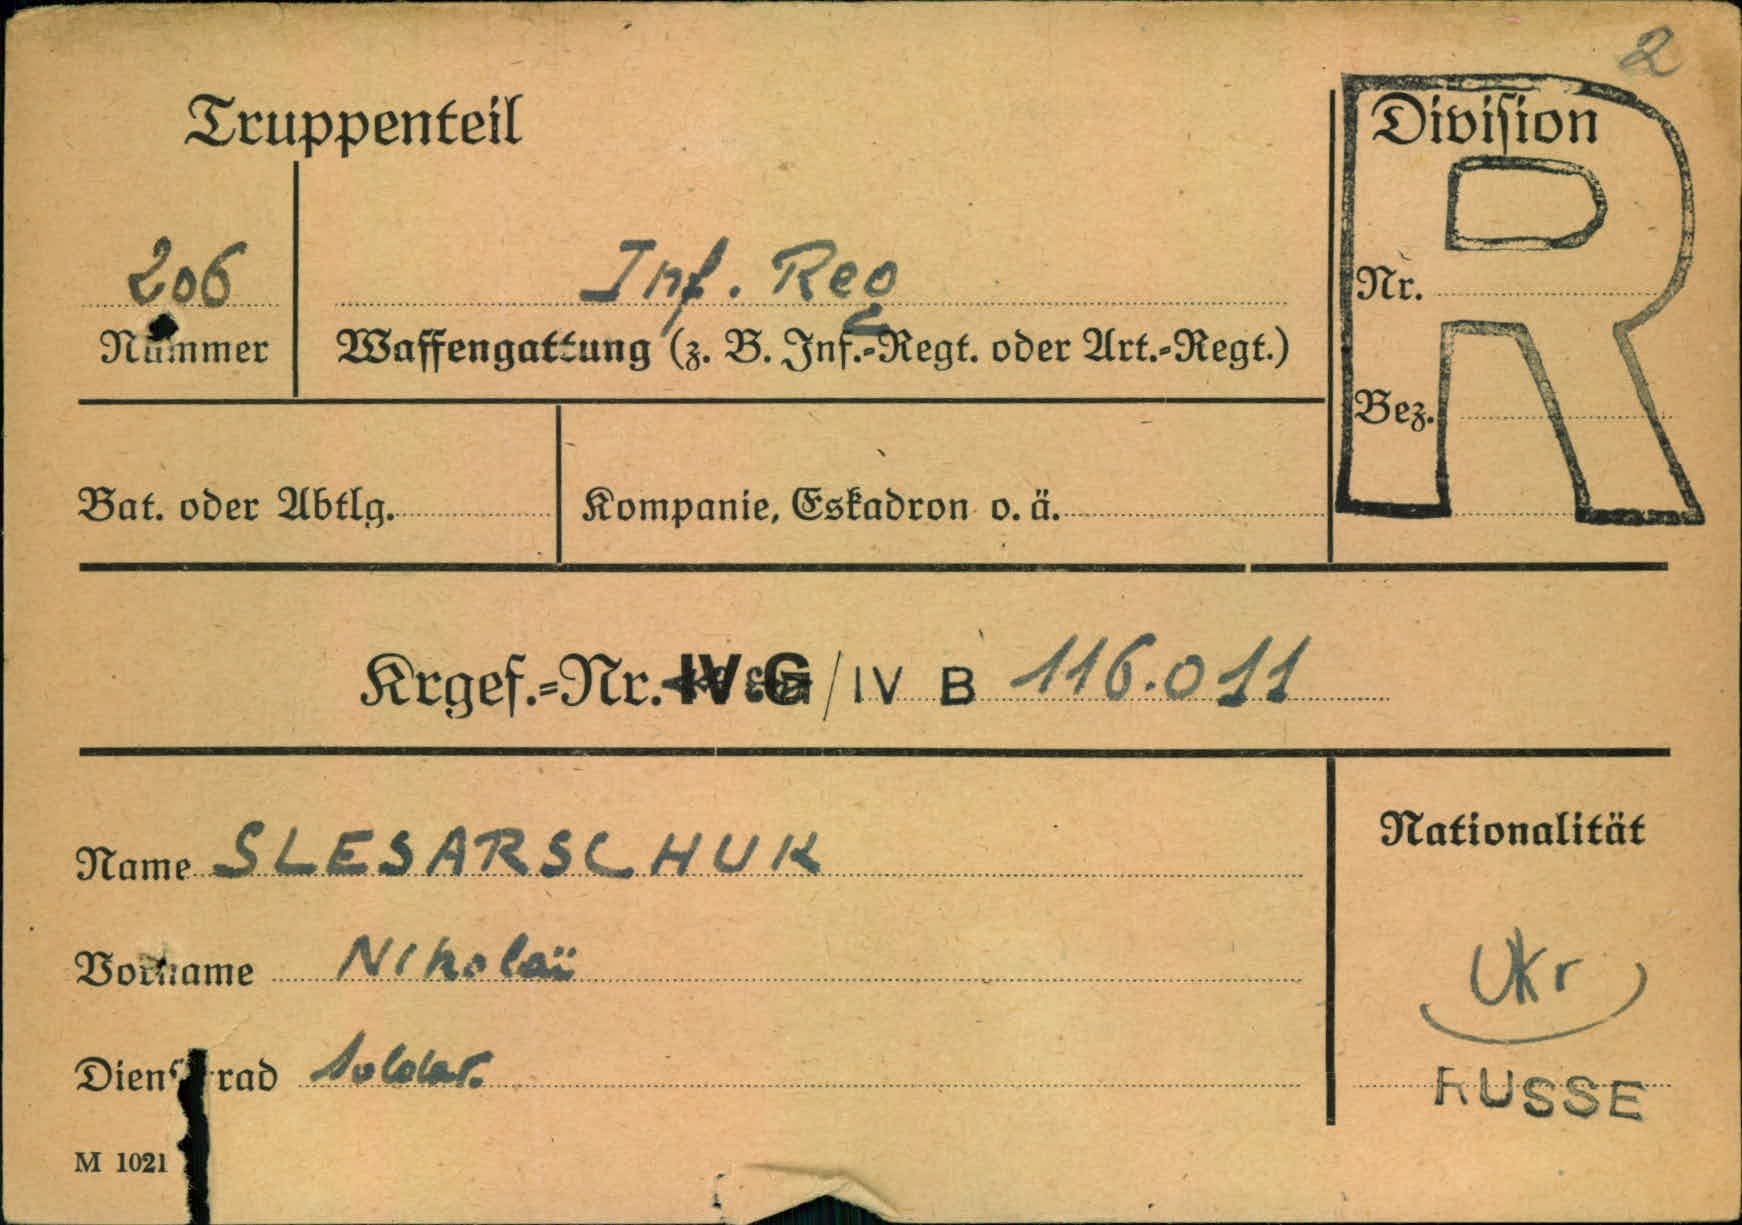 2
Truppenteil
Division
R
206
Inf. Reg
Nr.
Nummer
Waffengattung (z. B. Inf.-Regt. oder Art.-Regt.)
Bez.
Bat. oder Abtlg.
Kompanie, Eskadron o. ä.
Krgef.-Nr. IV G / IV B 116.011
Name SLESARSCHUK
Nationalität
Vorname Nikolaï
Ukr
Dienstgrad Soldat.
RUSSE
M 1021